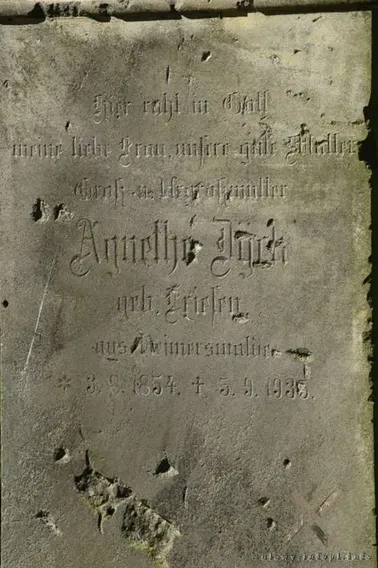 Hier ruht in Gott
meine liebe Frau, unsere gute Mutter
Groß- u. Urgroßmutter
Agnethe Dyck
geb. Friesen
aus Reimerswalde
* 3. 8. 1854. + 5. 9. 1938.